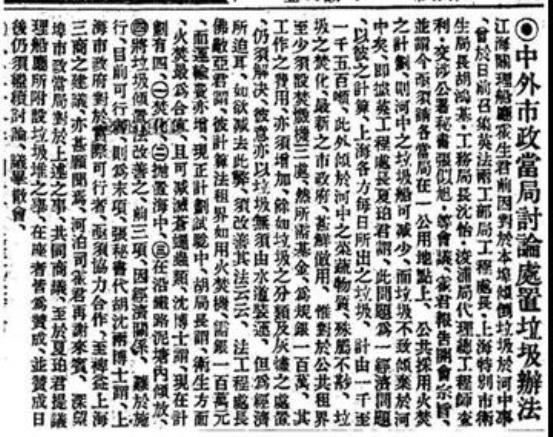 ◉中外市政當局討論處置垃圾辦法
江海關理船廳霍生君前因對於本埠傾倒垃圾於河中事
、曾於日前召集英法兩工部局工程處長、上海特別市衛
生局長胡鴻基、工務局長沈怡、浚浦局代理總工程師查
利、交涉公署秘書張似旭、等會議、霍君報告開會宗旨、
並謂今亟須請各當局在一公用地點上、公共採用火焚
之計劃、則河中之垃圾船可減少、而垃圾不致傾棄於河
中矣、即據英工程處長夏珀君謂、此問題爲一經濟問題
、以彼之計算、上海各方每日所出之垃圾、計由一千至
一千五百噸、此外傾於河中之菜蔬物質、殊屬不鈔、垃
圾之焚化、最新之市政府、甚鮮做用、惟對於公共租界
至少須設焚機三處、然所需基金、爲規銀一百萬、其
工作之費用、亦須增加、餘如垃圾之分類及灰燼之處置
、仍須解決、彼意亦以垃圾無須由水道裝運、但爲經濟
所迫耳、如欲減去此弊、須改善其法云云、法工程處長
佛敝亞君謂、彼計算法租界如用火焚機、需銀一百萬元
、而運輸費亦增、現正計劃試驗中、胡局長謂、衛生方面
、火焚最爲合宜、且可減滅蒼蠅蟲類、沈博士謂、現在計
劃有四、㊀焚化、㊁拋置海中、㊂在沿鐵路泥塘內傾放、
㊃將垃圾傾置法改善之、前三項、因經濟關係、難於施
行、目前可行者、則爲末項、張秘書代胡沈兩博士謂、上
海市政府對於實際可行者、亟須協力合作、至裨益上海
三商之建議、亦甚願聞焉、河泊司霍君再謝來賓、深望
埠市政當局對於上述之事、共同商議、至於夏珀君提議
理船廳所附設垃圾堆之舉、在座者皆爲贊成、並贊成日
後仍須繼續討論、議畢散會、